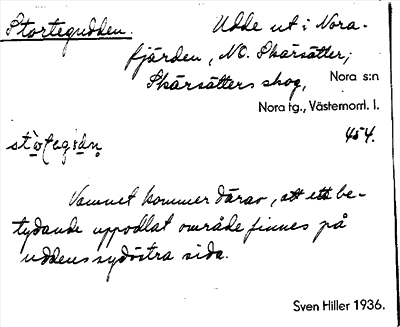 Stortegudden. Udde ut i Nora-
fjärden, NO. Skärsätter,
Skärsätters skog, Nora s:n
Nora tg., Västernorrl. l.
454.
Namnet kommer därav, att ett be-
tydande uppodlat område finnes på
uddens sydöstra sida.
Sven Hiller 1936.